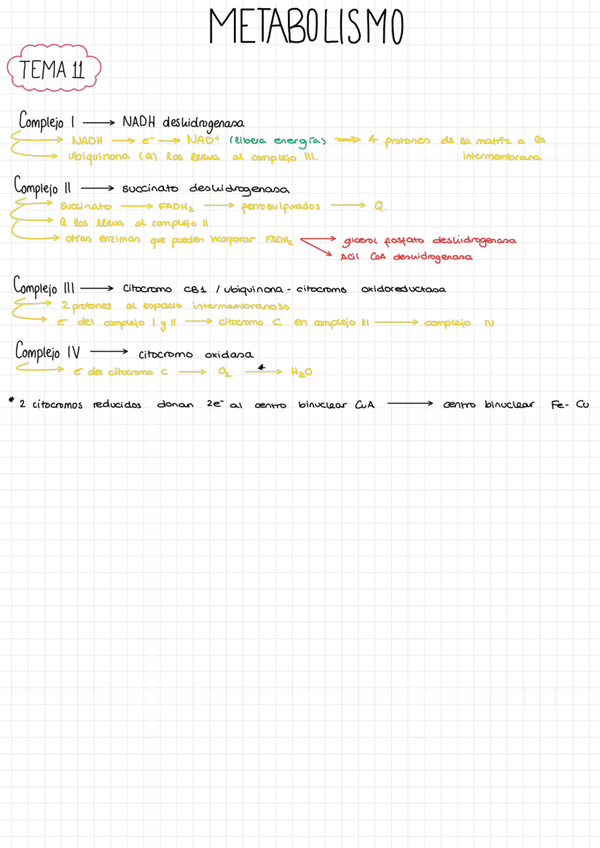 METABOLISMO
TEMA 11
Complejo I → NADH deshidrogenasa
NADH → e⁻ → NAD⁺ (libera energía) → 4 protones de la matriz a la intermembrana
Ubiquinona (Q) los lleva al complejo III.
Complejo II → succinato deshidrogenasa
Succinato → FADH₂ → ferrosulfurados → Q.
Q los lleva al complejo II
otras enzimas que pueden incorporar FADH₂ → glicerol fosfato deshidrogenasa
→ Acil CoA deshidrogenasa
Complejo III → citocromo CB1 / ubiquinona - citocromo oxidoreductasa
2 protones al espacio intermembranoso
e⁻ del complejo I y II → citocromo C en complejo III → complejo IV
Complejo IV → citocromo oxidasa
e⁻ del citocromo c → O₂ *→ H₂O
* 2 citocromos reducidos donan 2e⁻ al centro binuclear CuA → centro binuclear Fe - Cu